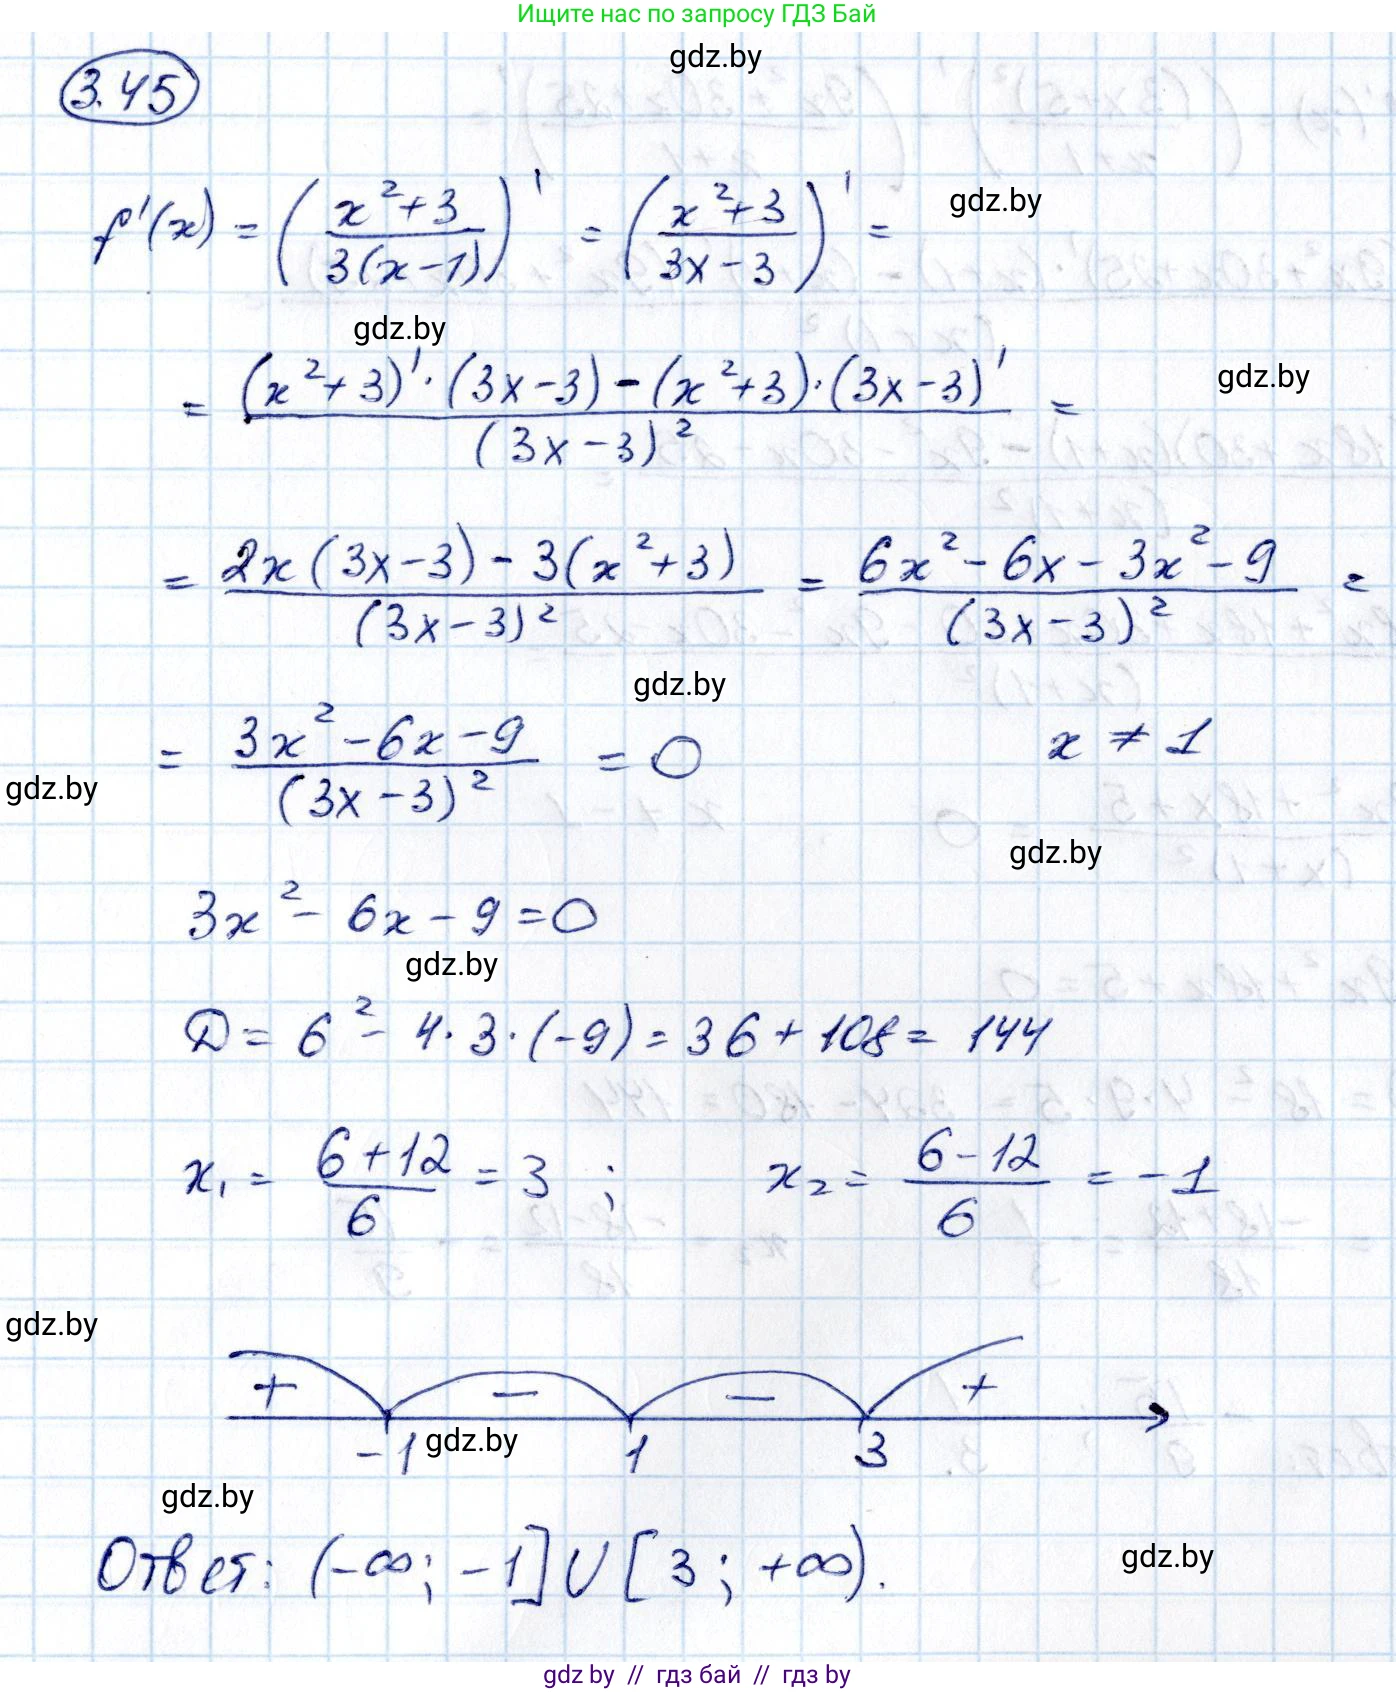 Ищите нас по запросу ГДЗ Бай
gdz.by
3.45
f'(x) = ( (x²+3) / (3(x-1)) )' = ( (x²+3) / (3x-3) )' =
gdz.by
gdz.by
= ((x²+3)'·(3x-3) - (x²+3)·(3x-3)') / (3x-3)² =
gdz.by
= (2x(3x-3) - 3(x²+3)) / (3x-3)² = (6x² - 6x - 3x² - 9) / (3x-3)² =
gdz.by
= (3x² - 6x - 9) / (3x-3)² = 0 x ≠ 1
gdz.by
gdz.by
3x² - 6x - 9 = 0
gdz.by
D = 6² - 4·3·(-9) = 36 + 108 = 144
x₁ = (6+12) / 6 = 3 ; x₂ = (6-12) / 6 = -1
gdz.by
+ − − +
-1 gdz.by 1 3
gdz.by
Ответ: (-∞; -1] ∪ [3; +∞).
gdz.by
gdz.by // гдз бай // гдз by